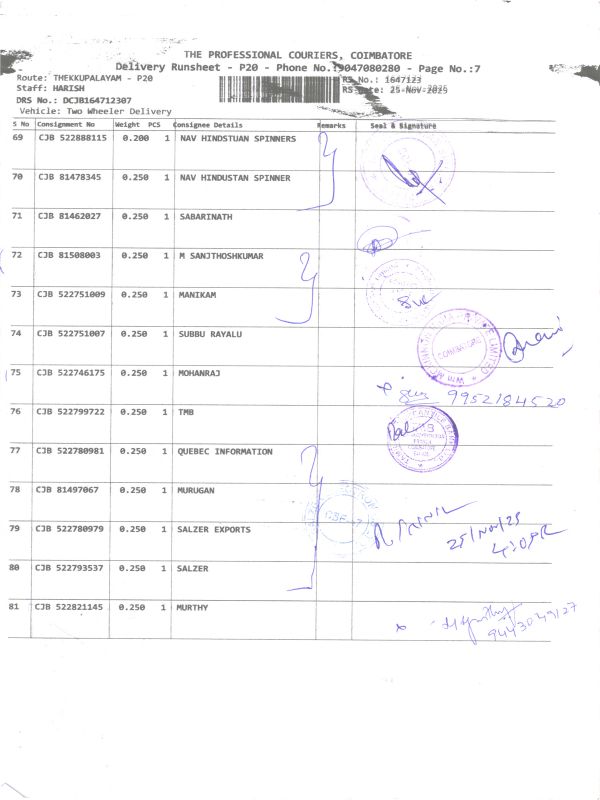 THE PROFESSIONAL COURIERS, COIMBATORE
Delivery Runsheet - P20 - Phone No.:9047080280 - Page No.:7
Route: THEKKUPALAYAM - P20
RS No.: 1647123
Staff: HARISH
RS Date: 25-Nov-2025
DRS No.: DCJB164712307
Vehicle: Two Wheeler Delivery
S No Consignment No Weight PCS Consignee Details Remarks Seal & Signature
69 CJB 522888115 0.200 1 NAV HINDSTUAN SPINNERS
70 CJB 81478345 0.250 1 NAV HINDUSTAN SPINNER
71 CJB 81462027 0.250 1 SABARINATH
72 CJB 81508003 0.250 1 M SANJTHOSHKUMAR
73 CJB 522751009 0.250 1 MANIKAM
74 CJB 522751007 0.250 1 SUBBU RAYALU
COIMBATORE
LIMITED
75 CJB 522746175 0.250 1 MOHANRAJ
9952184520
76 CJB 522799722 0.250 1 TMB
77 CJB 522780981 0.250 1 QUEBEC INFORMATION
78 CJB 81497067 0.250 1 MURUGAN
79 CJB 522780979 0.250 1 SALZER EXPORTS
25/Nov/25
80 CJB 522793537 0.250 1 SALZER
81 CJB 522821145 0.250 1 MURTHY
9443049127